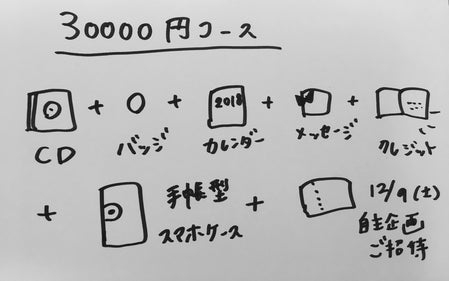 30000円コース
+ + 2018 + +
CD バッジ カレンダー メッセージ クレジット
+ 手帳型 + 12/9(土)
スマホケース 自主企画
ご招待